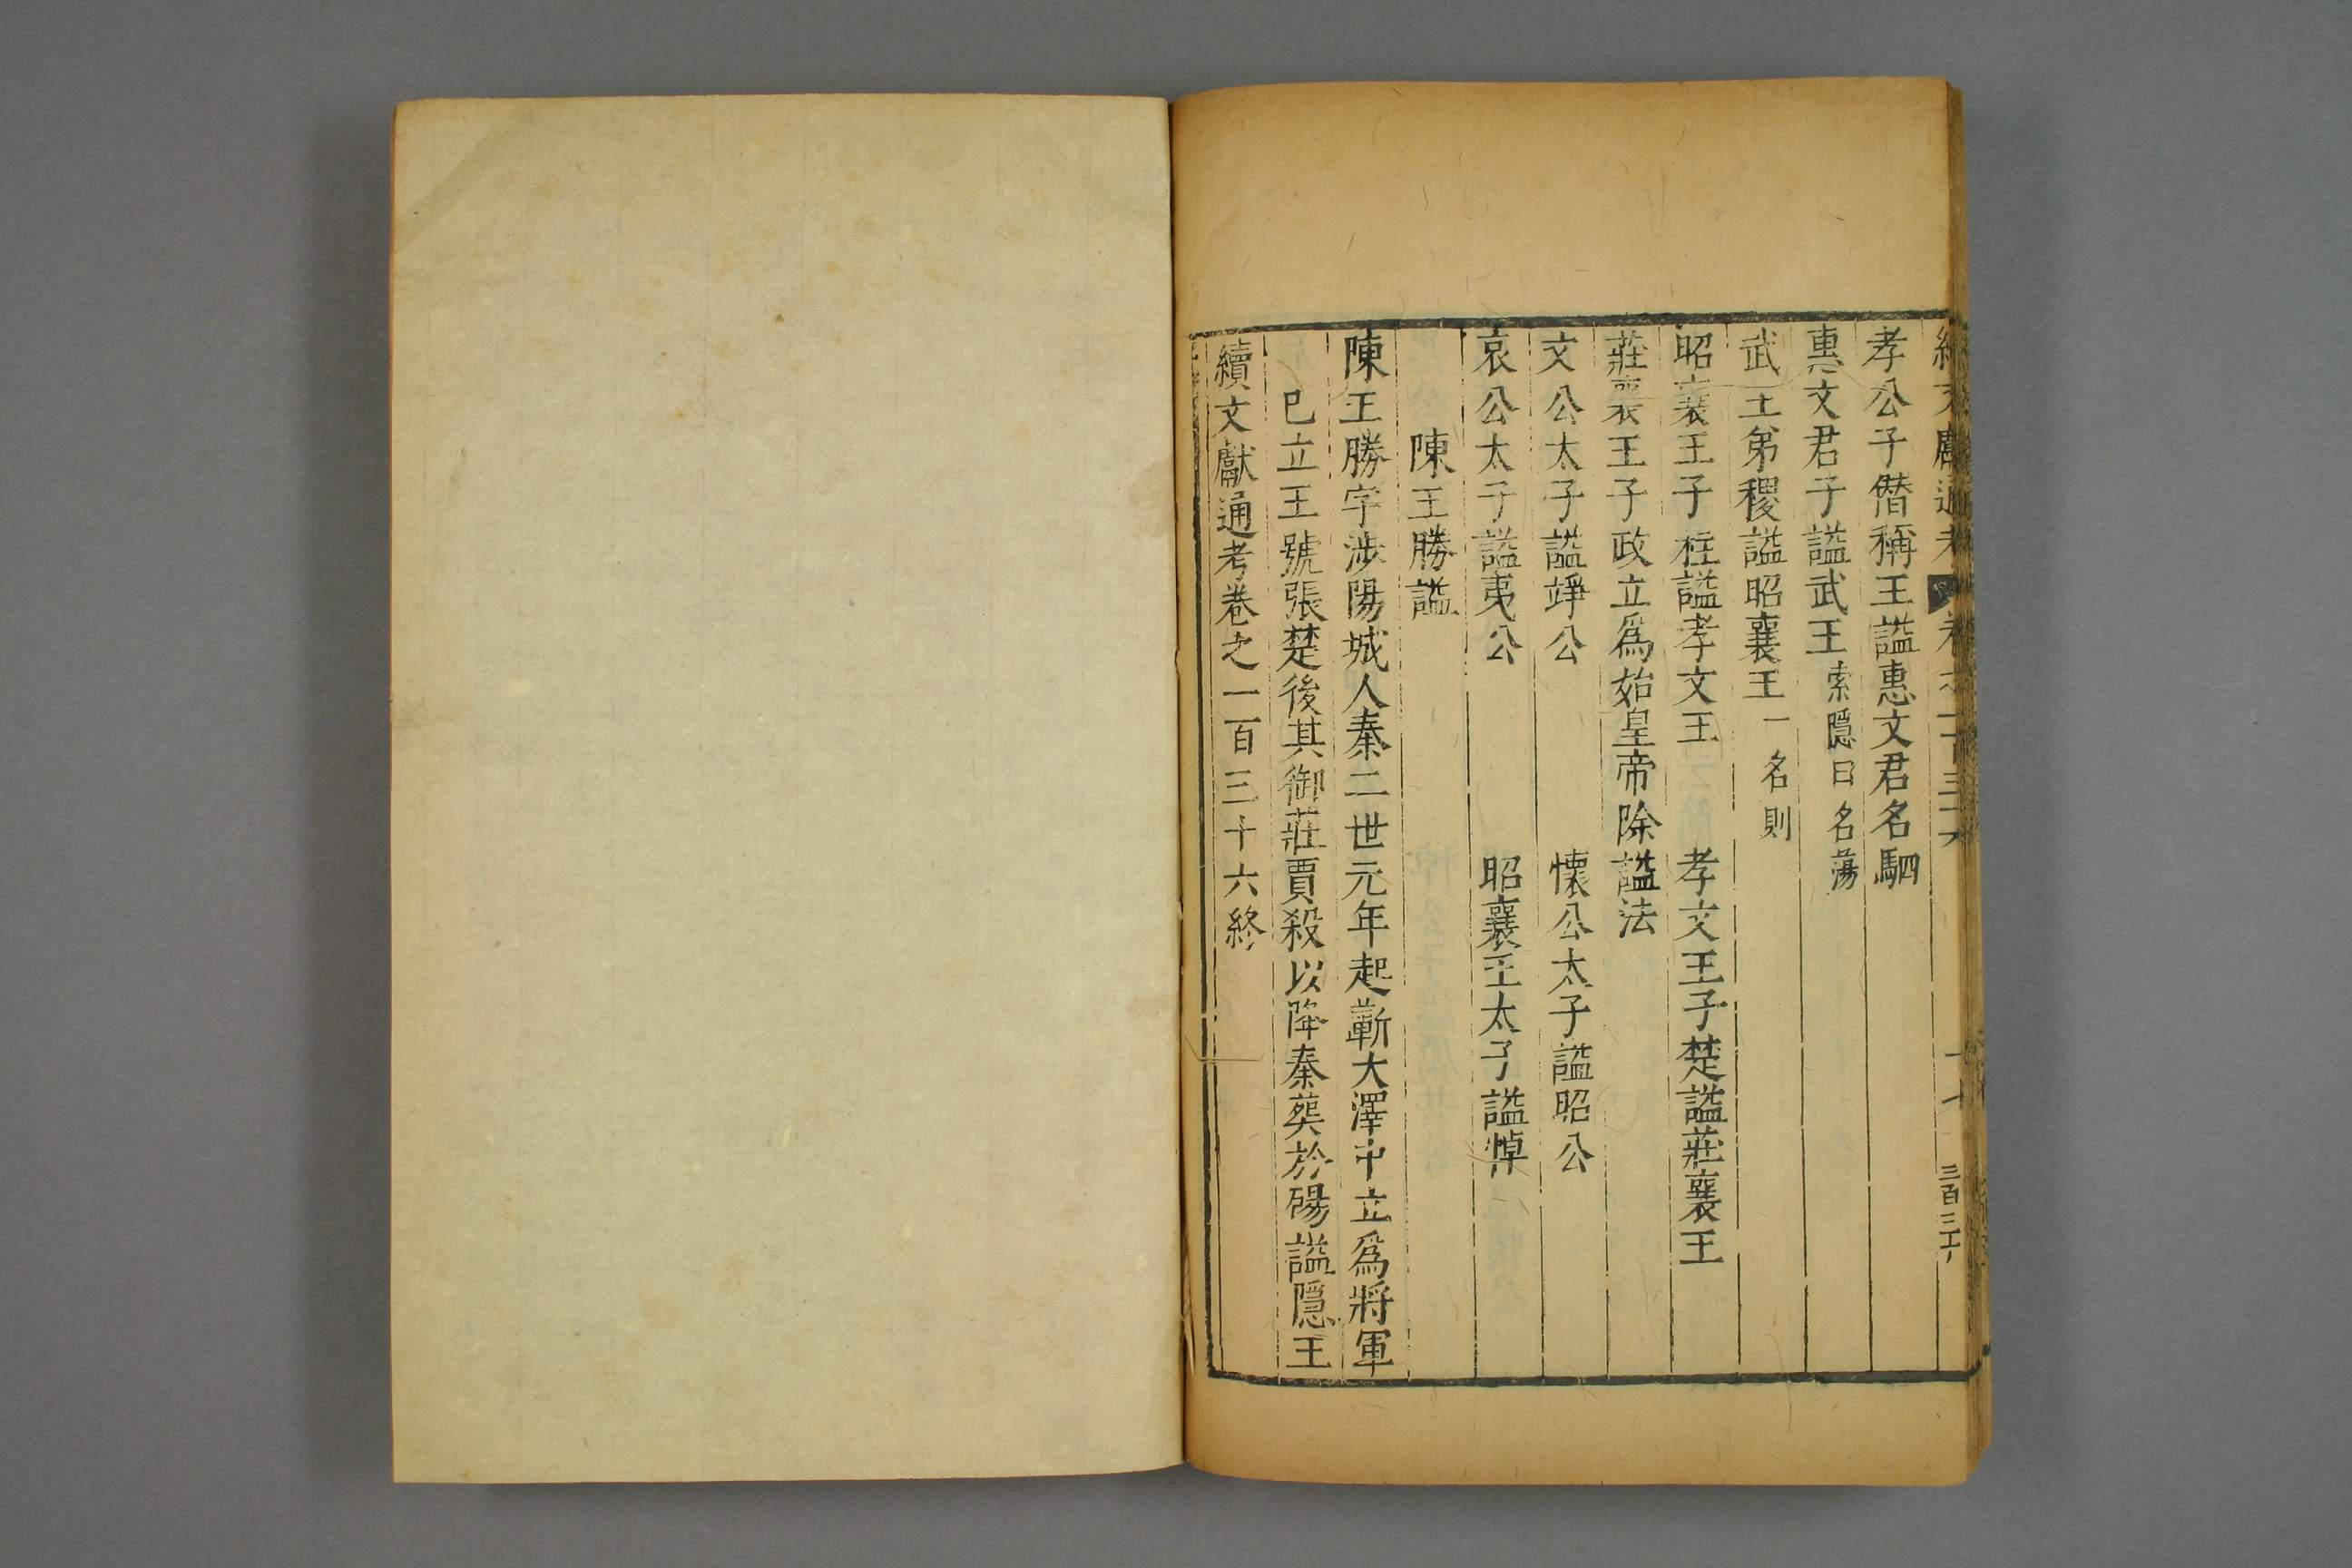 續文獻通考 卷之一百三十六 十七
孝公子僭稱王謚惠文君名駟
惠文君子謚武王索隱曰名蕩
武王弟稷謚昭襄王一名則
昭襄王子柱謚孝文王 孝文王子楚謚莊襄王
莊襄王子政立爲始皇帝除謚法
文公太子謚竫公 懷公太子謚昭公
哀公太子謚夷公 昭襄王太子謚悼
陳王勝謚
陳王勝字涉陽城人秦二世元年起蘄大澤中立爲將軍
已立王號張楚後其御莊賈殺以降秦葬於碭謚隱王
續文獻通考卷之一百三十六終